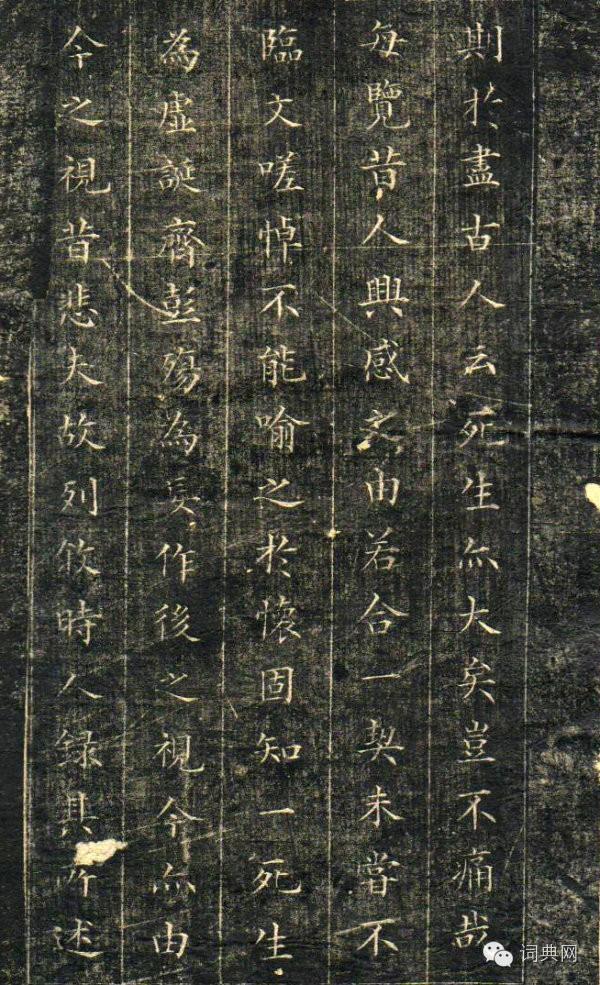 期於盡古人云死生亦大矣豈不痛哉
每覽昔人興感之由若合一契未嘗不
臨文嗟悼不能喻之於懷固知一死生
為虛誕齊彭殤為妄作後之視今亦由
今之視昔悲夫故列敘時人録其所述
词典网